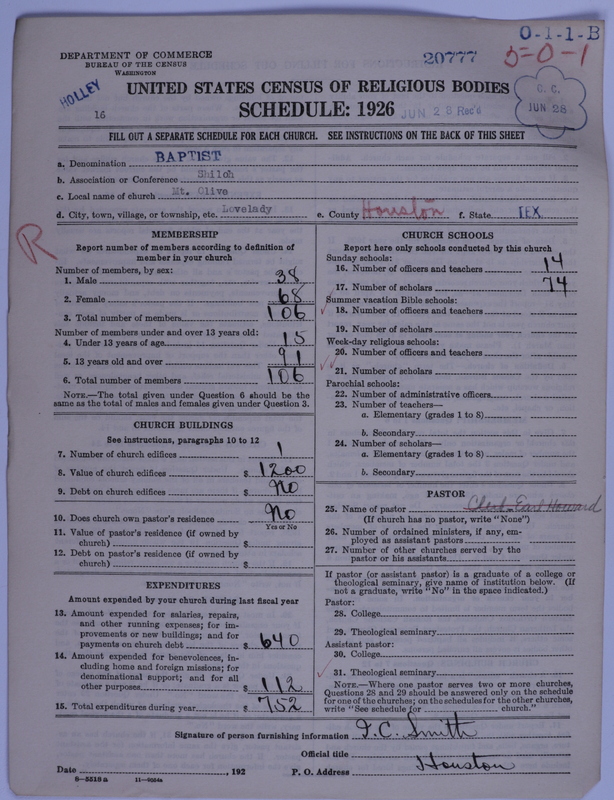 O-1-1-B
5-0-1
20777
DEPARTMENT OF COMMERCE
BUREAU OF THE CENSUS
WASHINGTON
HOLLEY
UNITED STATES CENSUS OF RELIGIOUS BODIES
16
SCHEDULE: 1926
JUN 28 Rec'd
C. C.
JUN 28
FILL OUT A SEPARATE SCHEDULE FOR EACH CHURCH. SEE INSTRUCTIONS ON THE BACK OF THIS SHEET
a. Denomination BAPTIST
b. Association or Conference Shiloh
c. Local name of church Mt. Olive
d. City, town, village, or township, etc. Lovelady e. County Houston f. State TEX
R
MEMBERSHIP
Report number of members according to definition of
member in your church
Number of members, by sex:
1. Male 38
2. Female 68
3. Total number of members 106
Number of members under and over 13 years old:
4. Under 13 years of age 15
5. 13 years old and over 91
6. Total number of members 106
NOTE.—The total given under Question 6 should be the
same as the total of males and females given under Question 3.
CHURCH BUILDINGS
See instructions, paragraphs 10 to 12
7. Number of church edifices 1
8. Value of church edifices $ 1200
9. Debt on church edifices $ No
10. Does church own pastor's residence No
Yes or No
11. Value of pastor's residence (if owned by
church) $
12. Debt on pastor's residence (if owned by
church) $
EXPENDITURES
Amount expended by your church during last fiscal year
13. Amount expended for salaries, repairs,
and other running expenses; for im-
provements or new buildings; and for
payments on church debt $ 640
14. Amount expended for benevolences, in-
cluding home and foreign missions; for
denominational support; and for all
other purposes $ 112
15. Total expenditures during year $ 752
CHURCH SCHOOLS
Report here only schools conducted by this church
Sunday schools:
16. Number of officers and teachers 14
17. Number of scholars 74
Summer vacation Bible schools:
18. Number of officers and teachers
19. Number of scholars
Week-day religious schools:
20. Number of officers and teachers
21. Number of scholars
Parochial schools:
22. Number of administrative officers
23. Number of teachers—
a. Elementary (grades 1 to 8)
b. Secondary
24. Number of scholars—
a. Elementary (grades 1 to 8)
b. Secondary
PASTOR
25. Name of pastor Clerk-Earl Howard
(If church has no pastor, write "None")
26. Number of ordained ministers, if any, em-
ployed as assistant pastors
27. Number of other churches served by the
pastor or his assistants
If pastor (or assistant pastor) is a graduate of a college or
theological seminary, give name of institution below. (If
not a graduate, write "No" in the space indicated.)
Pastor:
28. College
29. Theological seminary
Assistant pastor:
30. College
31. Theological seminary
NOTE.—Where one pastor serves two or more churches,
Questions 28 and 29 should be answered only on the schedule
for one of the churches; on the schedules for the other churches,
write "See schedule for church."
Signature of person furnishing information I. C. Smith
Official title
Date , 192 P. O. Address Houston
8-5518 a